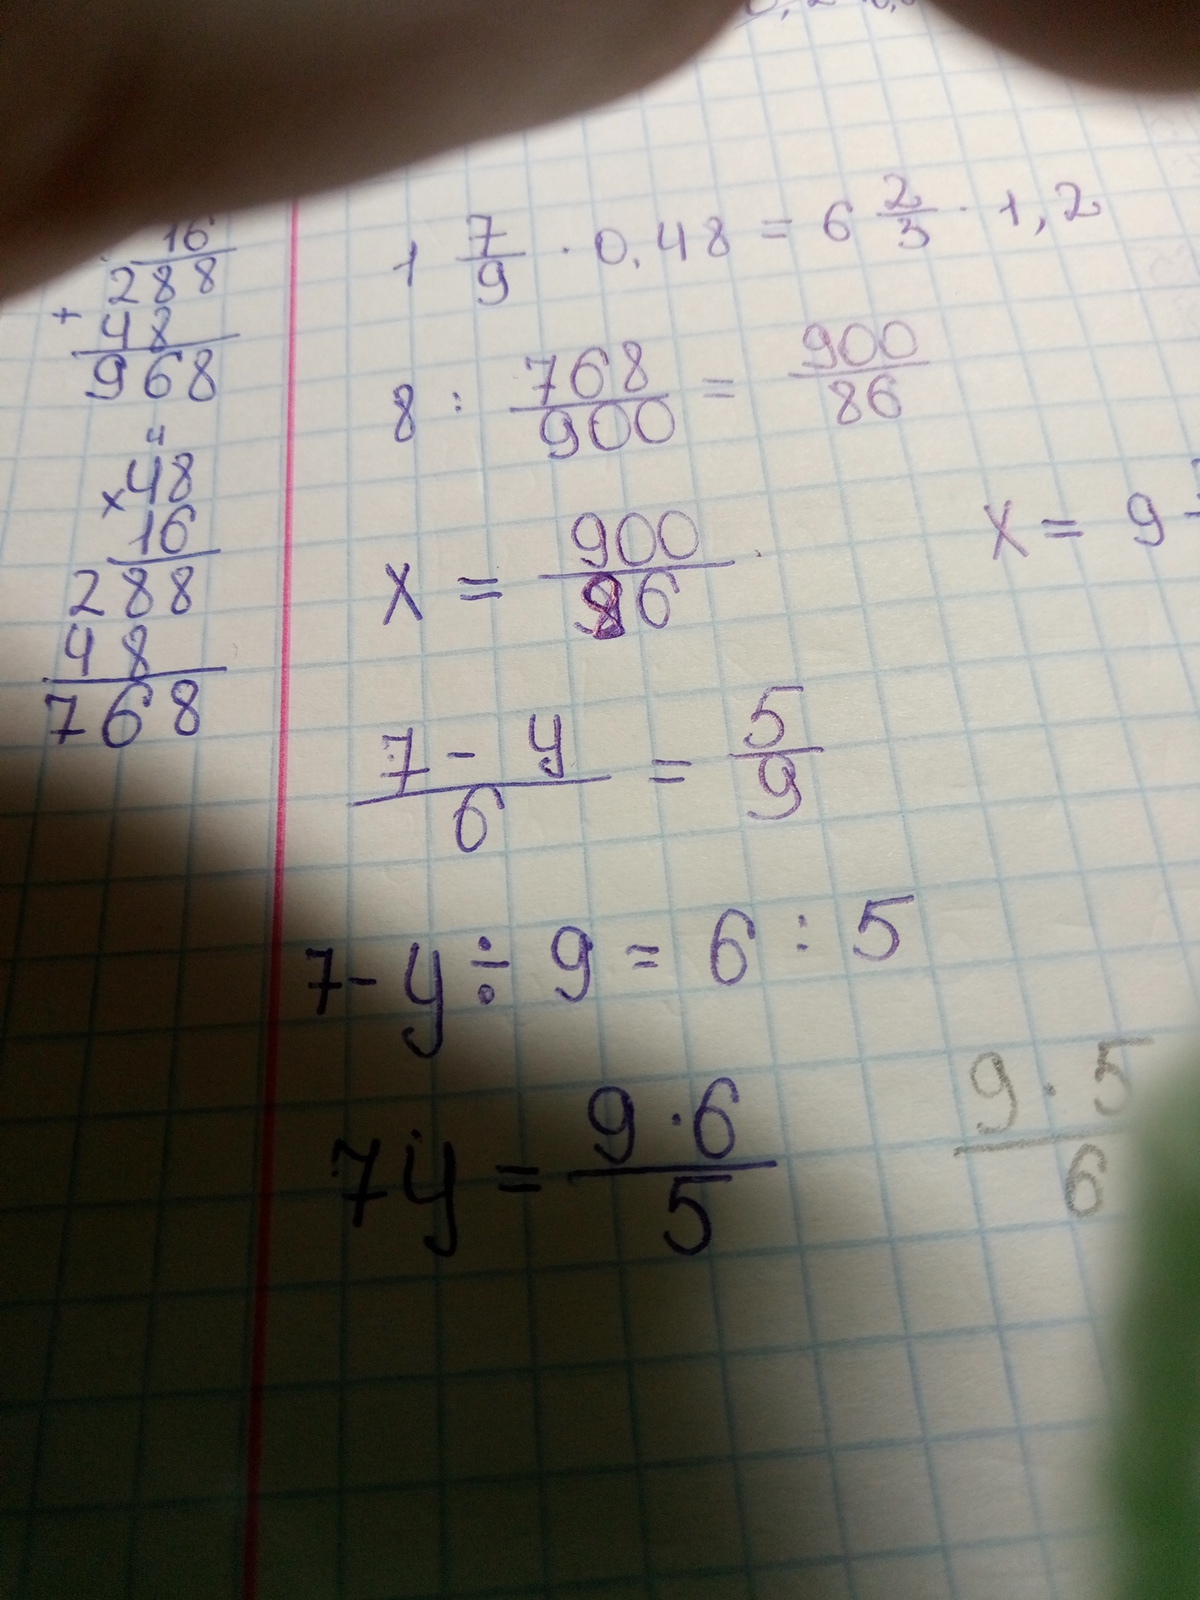 16
288
+
48
968
4
× 48
16
288
48
768
1 7/9 · 0,48 = 6 2/3 · 1,2
8 : 768/900 = 900/86
x = 900/86
x = 9
7 - y / 6 = 5/9
7 - y ÷ 9 = 6 : 5
7y = 9 · 6 / 5
9 · 5 / 6